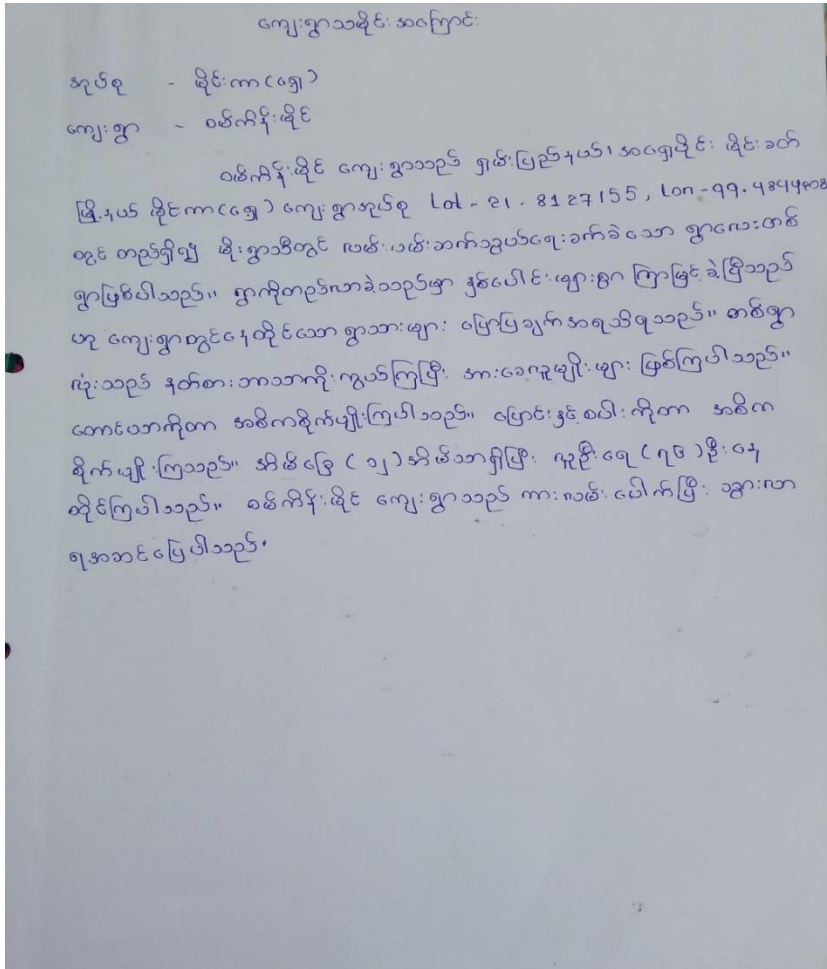 ကျေးရွာသမိုင်းအကြောင်း
အုပ်စု - မိုင်းကာ(ရှေ့)
ကျေးရွာ - ဝမ်ကိန်းမိုင်
ဝမ်ကိန်းမိုင် ကျေးရွာသည် ရှမ်းပြည်နယ်၊ အရှေ့ပိုင်း မိုင်းခတ်
မြို့နယ် မိုင်းကာ(ရှေ့) ကျေးရွာအုပ်စု Lat - 21.8127155, Lon - 99.
တွင် တည်ရှိ၍ မိုးရွာသီတွင် လမ်းပမ်းဆက်သွယ်ရေးခက်ခဲသော ရွာလေးတစ်
ရွာဖြစ်ပါသည်။ ရွာကိုတည်လာခဲ့သည်မှာ နှစ်ပေါင်းများစွာ ကြာမြင့်ခဲ့ပြီသည်
ဟု ကျေးရွာတွင်နေထိုင်သော ရွာသားများ ပြောပြချက်အရသိရသည်။ တစ်ရွာ
လုံးသည် နတ်စားဘာသာကိုးကွယ်ကြပြီး အားခေလူမျိုးများ ဖြစ်ကြပါသည်။
တောင်ယာကိုတာ အဓိကစိုက်ပျိုးကြပါသည်။ ပြောင်းနှင့်စပါးကိုတာ အဓိက
စိုက်ပျိုးကြသည်။ အိမ်ခြေ (၁၂)အိမ်သာရှိပြီး လူဦးရေ (၇၆)ဦးနေ
ထိုင်ကြပါသည်။ ဝမ်ကိန်းမိုင် ကျေးရွာသည် ကားလမ်းပေါက်ပြီး သွားလာ
ရအဆင်ပြေပါသည်။